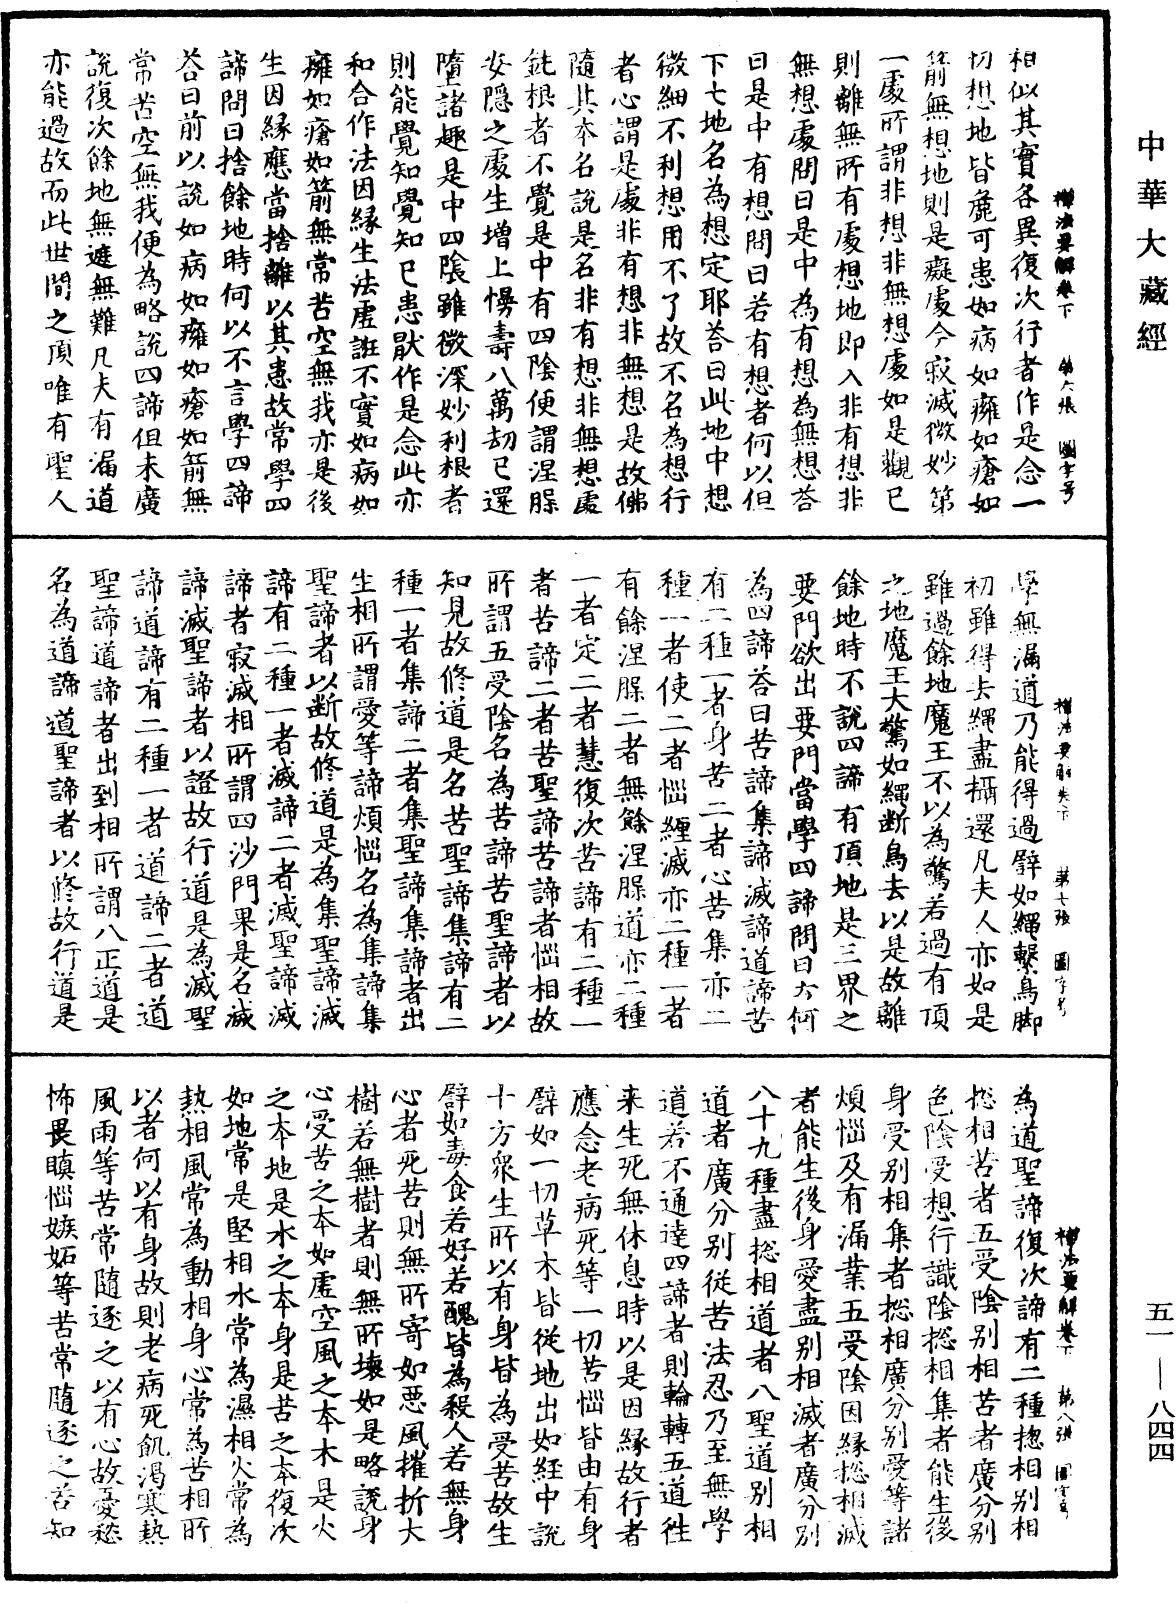 中華大藏經
禪法要解卷下 第六張 圖字号
相似其實各異復次行者作是念一
切想地皆麁可患如病如癕如瘡如
箭無想地則是癡處今寂滅微妙第
一處所謂非想非無想處如是觀已
則離無所有處想地即入非有想非
無想處問曰是中為有想為無想荅
曰是中有想問曰若有想者何以但
下七地名為想定耶荅曰此地中想
微細不利想用不了故不名為想行
者心謂是處非有想非無想是故佛
隨其本名說是名非有想非無想處
鈍根者不覺是中有四陰便謂涅槃
安隱之處生增上慢壽八萬劫已還
墮諸趣是中四陰雖微深妙利根者
則能覺知覺知已患猒作是念此亦
和合作法因緣生法虛誑不實如病如
癕如瘡如箭無常苦空無我亦是後
生因緣應當捨離以其患故常學四
諦問曰捨餘地時何以不言學四諦
荅曰前以說如病如癕如瘡如箭無
常苦空無我便為略說四諦但未廣
說復次餘地無遮無難凡夫有漏道
亦能過故而此世間之頂唯有聖人
禪法要解卷下 第七張 圖字号
學無漏道乃能得過譬如繩繫鳥脚
初雖得去繩盡攝還凡夫人亦如是
雖過餘地魔王不以為驚若過有頂
之地魔王大驚如繩断鳥去以是故離
餘地時不說四諦有頂地是三界之
要門欲出要門當學四諦問曰云何
為四諦荅曰苦諦集諦滅諦道諦苦
有二種一者身苦二者心苦集亦二
種一者使二者惱纏滅亦二種一者
有餘涅槃二者無餘涅槃道亦二種
一者定二者慧復次苦諦有二種一
者苦諦二者苦聖諦苦諦者惱相故
所謂五受陰名為苦諦苦聖諦者以
知見故修道是名苦聖諦集諦有二
種一者集諦二者集聖諦集諦者出
生相所謂愛等諦煩惱名為集諦集
聖諦者以断故修道是為集聖諦滅
諦有二種一者滅諦二者滅聖諦滅
諦者寂滅相所謂四沙門果是名滅
諦滅聖諦者以證故行道是為滅聖
諦道諦有二種一者道諦二者道
聖諦道諦者出到相所謂八正道是
名為道諦道聖諦者以修故行道是
禪法要解卷下 第八張 圖字号
為道聖諦復次諦有二種揔相別相
揔相苦者五受陰別相苦者廣分別
色陰受想行識陰揔相集者能生後
身受別相集者揔相廣分別愛等諸
煩惱及有漏業五受陰因緣揔相滅
者能生後身愛盡別相滅者廣分別
八十九種盡揔相道者八聖道別相
道者廣分別從苦法忍乃至無學
道若不通達四諦者則輪轉五道往
来生死無休息時以是因緣故行者
應念老病死等一切苦惱皆由有身
譬如一切草木皆從地出如經中說
十方衆生所以有身皆為受苦故生
譬如毒食若好若醜皆為殺人若無身
心者死苦則無所寄如惡風摧折大
樹若無樹者則無所壞如是略說身
心受苦之本如虛空風之本木是火
之本地是水之本身是苦之本復次
如地常是堅相水常為濕相火常為
熱相風常為動相身心常為苦相所
以者何以有身故則老病死飢渴寒熱
風雨等苦常隨逐之以有心故憂愁
怖畏瞋惱嫉妬等苦常隨逐之若知
五一—八四四